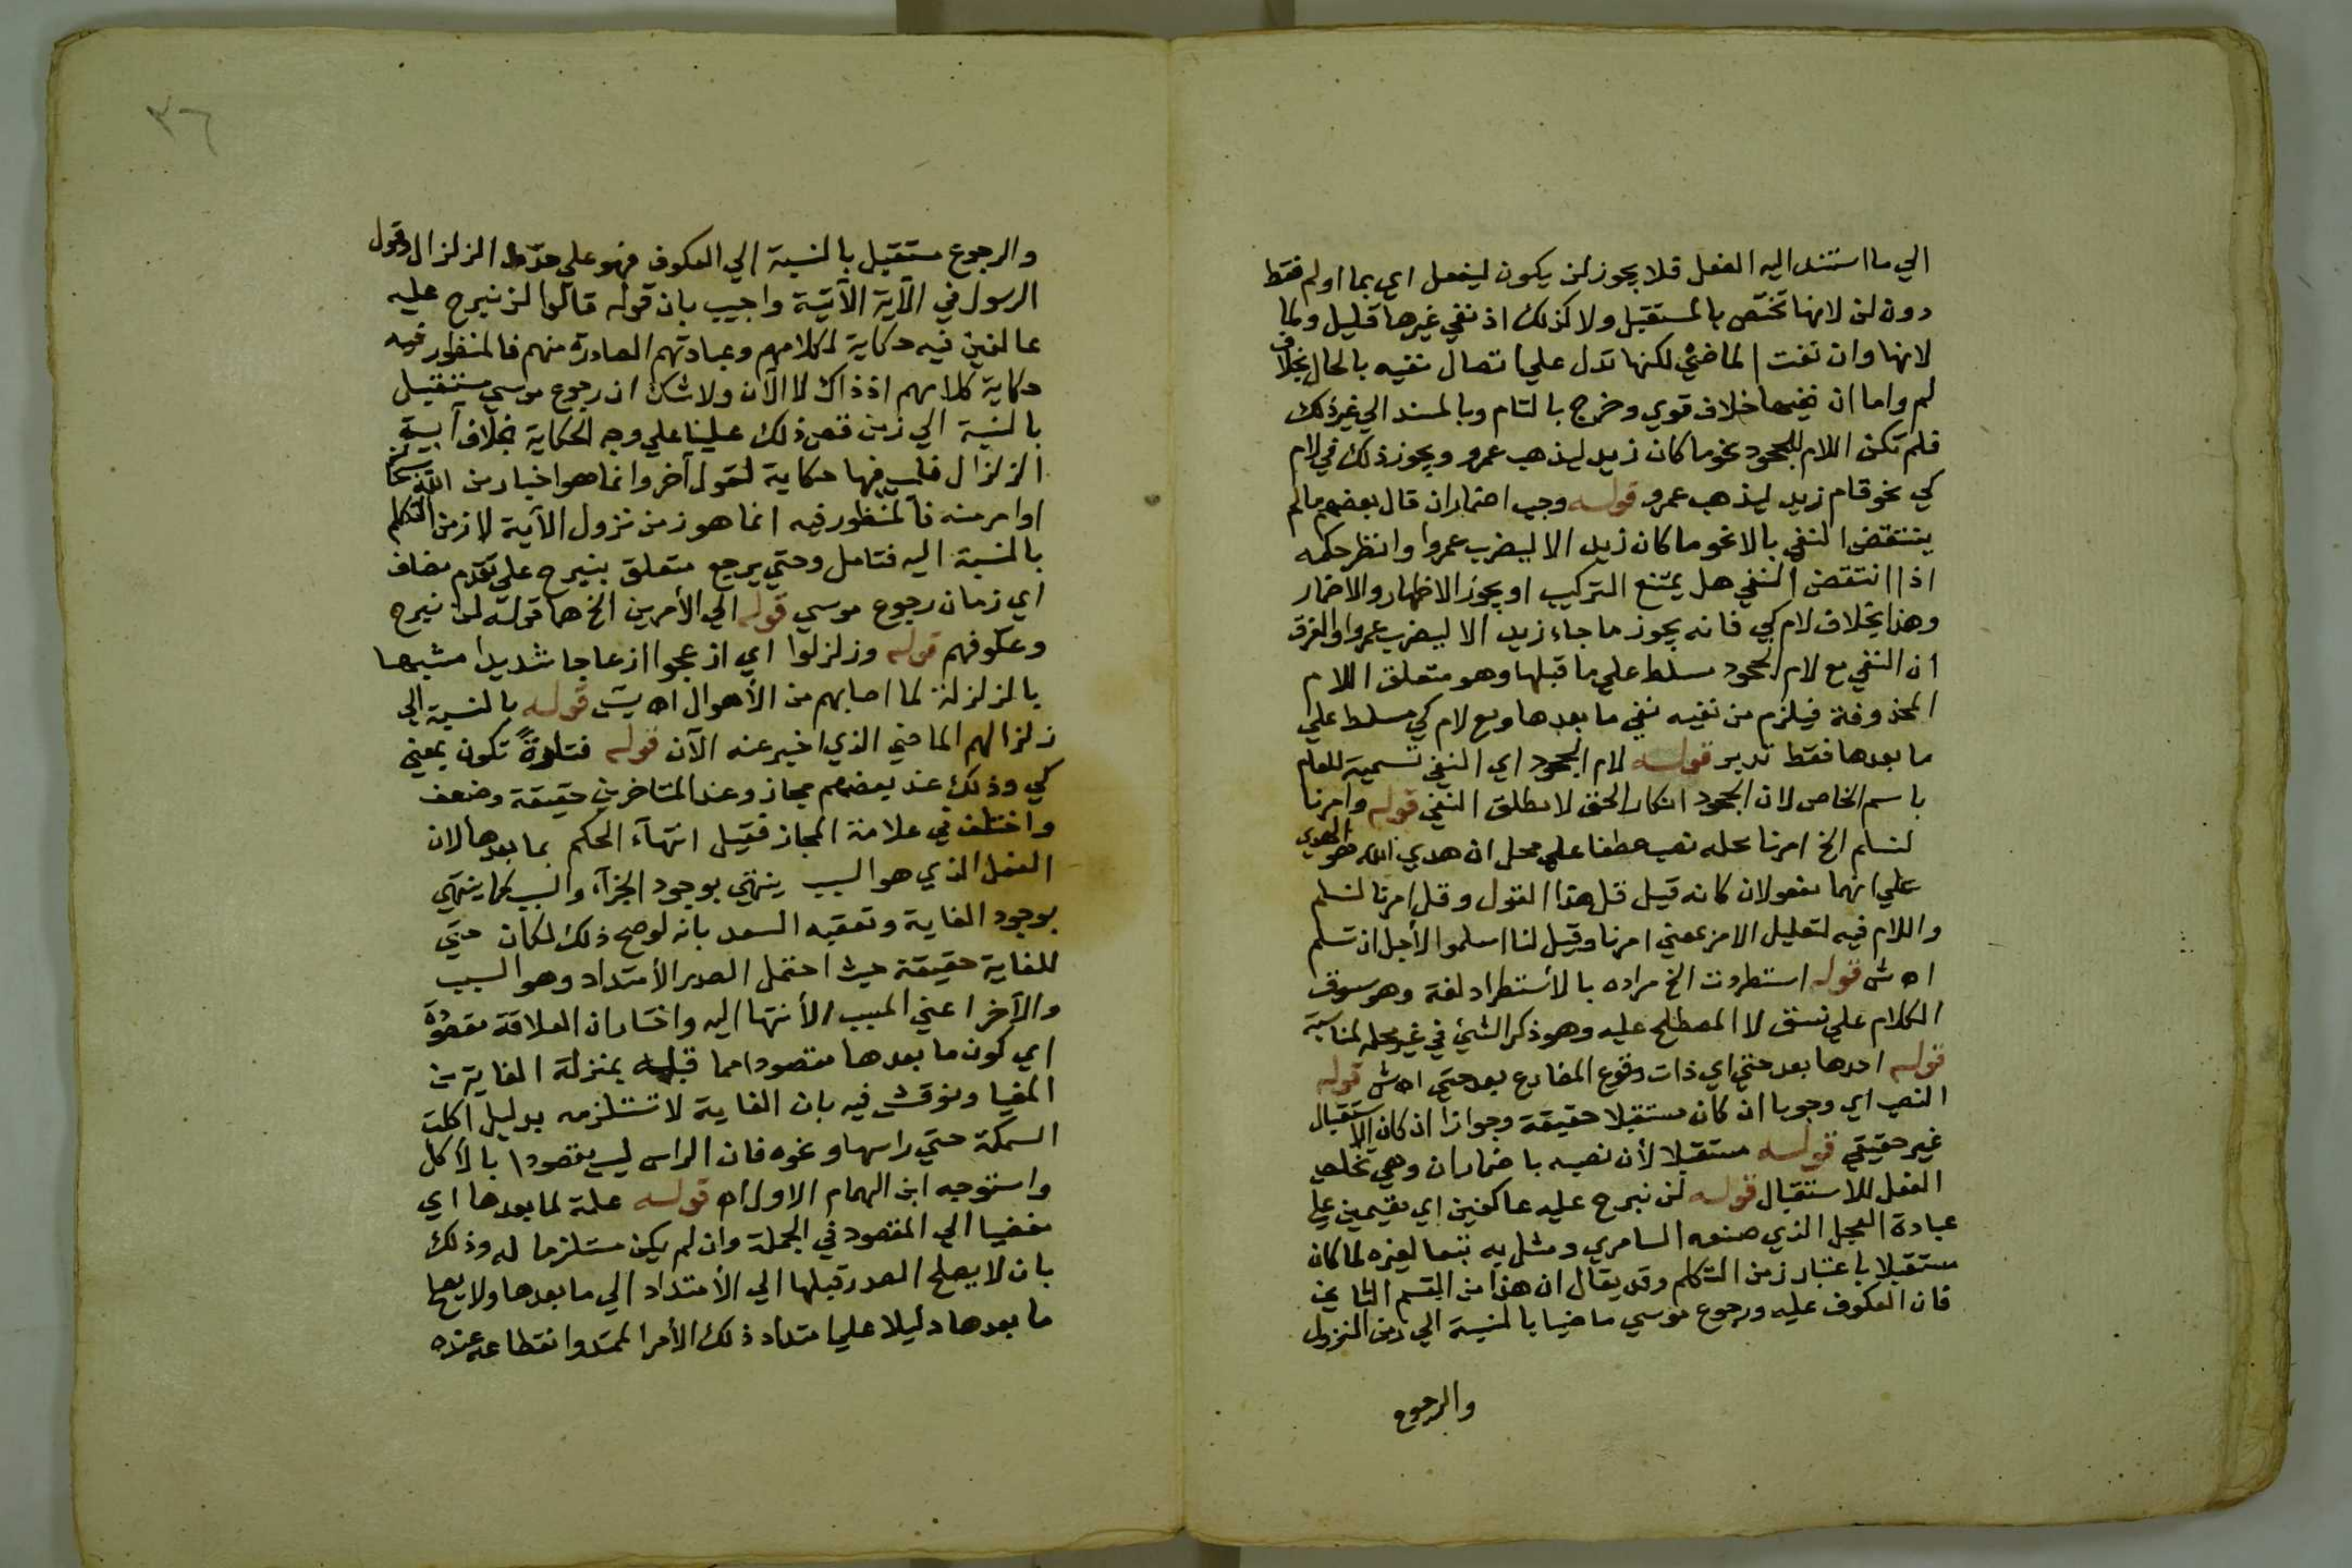 الي ما استند اليه الفعل فلا يجوز لن يكون ليفعل اي بما او لم فقط
دون لن لانها تختص بالمستقبل ولا كذلك اذ نفي غيرها قليل ولما
لانها وان نفت الماضي لكنها تدل علي اتصال نفيه بالحال بخلاف
لم واما ان نفيها خلاف قوي وخرج بالتام وبالمسند الي غير ذلك
فلم تكن اللام للجحود نحو ما كان زيد ليذهب عمرو ويجوز ذلك في لام
كي نحو قام زيد ليذهب عمرو قوله وجب اضمار ان قال بعضهم ما لم
ينتقض النفي بالا نحو ما كان زيد الا ليضرب عمروا وانظر حكمه
اذا انتقض النفي هل يمتنع التركيب او يجوز الاظهار والاضمار
وهذا بخلاف لام كي فانه يجوز ما جاء زيد الا ليضرب عمروا والفرق
ان النفي مع لام الجحود مسلط علي ما قبلها وهو متعلق اللام
المحذوفة فيلزم من نفيه نفي ما بعدها ومع لام كي مسلط علي
ما بعدها فقط تدبر قوله لام الجحود اي النفي تسمية للعام
باسم الخاص لان الجحود انكار الحق لا مطلق النفي قوله وامرنا
لنسلم الخ امرنا محله نصب عطفا علي محل ان هدي الله هو الهدي
علي انهما مفعولان كانه قيل قل هذا القول وقل امرنا لنسلم
واللام فيه لتعليل الامر بمعني امرنا وقيل لنا اسلموا لأجل ان نسلم
اه ش قوله استطردت الخ مراده بالأستطراد لغة وهو سوق
الكلام علي نسق لا المصطلح عليه وهو ذكر الشئ في غير محله لمناسبة
قوله احدها بعد حتي اي ذات وقوع المضارع بعد حتي اه ش قوله
النصب اي وجوبا ان كان مستقبلا حقيقة وجوازا ان كان الاستقبال
غير حقيقي قوله مستقبلا لأن نصبه باضمار ان وهي تخلص
الفعل للاستقبال قوله لن نبرح عليه عاكفين اي مقيمين علي
عبادة العجل الذي صنعه السامري ومثل به تبعا لغيره لما كان
مستقبلا باعتبار زمن التكلم وقد يقال ان هذا من القسم الثاني
فان العكوف عليه ورجوع موسي ماضيا بالنسبة الي زمن النزول
والرجوع
٣٦
والرجوع مستقبل بالنسبة الي العكوف فهو علي حد الزلزال وقول
الرسول في الآية الآتية واجيب بان قوله قالوا لن نبرح عليه
عاكفين فيه حكاية لكلامهم وعبادتهم الصادرة منهم فالمنظور فيه
حكاية كلامهم اذ ذاك لا الآن ولا شك ان رجوع موسي مستقبل
بالنسبة الي زمن قص ذلك علينا علي وجه الحكاية بخلاف آية
الزلزال فليس فيها حكاية لقول آخر وانما هو اخبار من الله
اوامر منه فالمنظور فيه انما هو زمن نزول الآية لا زمن التكلم
بالنسبة اليه فتامل وحتي يرجع متعلق بنبرح علي تقدم مضاف
اي زمان رجوع موسي قوله الي الأمرين الخ هما قوله لن نبرح
وعكوفهم قوله وزلزلوا اي ازعجوا ازعاجا شديدا مشبها
بالزلزلة لما اصابهم من الأهوال اه قوله بالنسبة الي
زلزالهم الماضي الذي اخبر عنه الآن قوله فتارة تكون بمعني
كي وذلك عند بعضهم مجاز وعند المتاخرين حقيقة وضعف
واختلف في علامة المجاز فقيل انتهآء الحكم بما بعدها لان
الفعل الذي هو السبب ينتهي بوجود الجزآء والسبب كما ينتهي
بوجود الغاية وتعقبه السعد بانه لو صح ذلك لكان حتي
للغاية حقيقة حيث احتمل الصدر الأمتداد وهو السبب
والآخر اعني المسبب الأنتها اليه واختار ان العلاقة مقصودة
اي كون ما بعدها مقصودا مما قبله بمنزلة الغاية من
المغيا ونوقش فيه بان الغاية لا تستلزمه بدليل اكلت
السمكة حتي راسها ونحوه فان الراس ليس مقصودا بالأكل
واستوجه ابن الهمام الاول اه قوله علة لما بعدها اي
مفضيا الي المقصود في الجملة وان لم يكن مستلزما له وذلك
بان لا يصلح الصدر قبلها الي الأمتداد الي ما بعدها ولا يصلح
ما بعدها دليلا علي امتداد ذلك الأمر الممتد وانقطاعه عنده